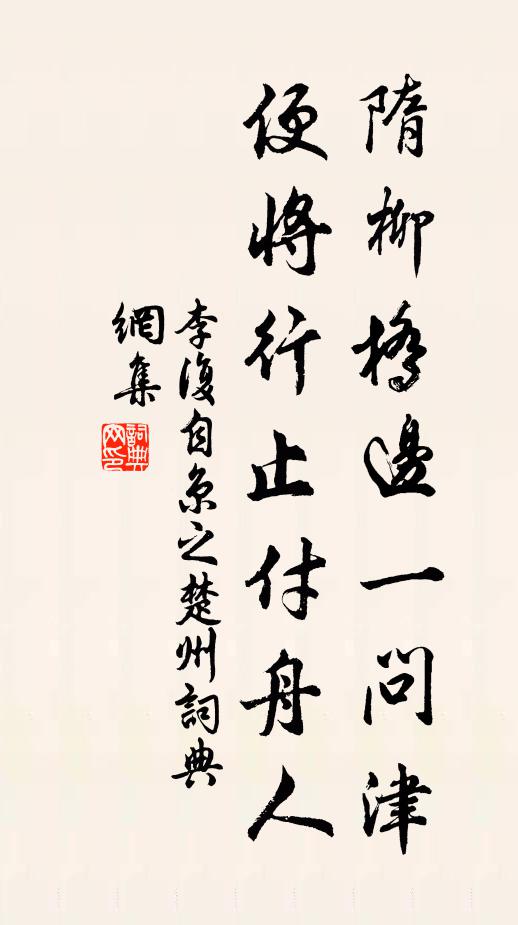 隋柳橋邊一問津
便將行止付舟人
李復自京之楚州詞典
網集
詞典
网印